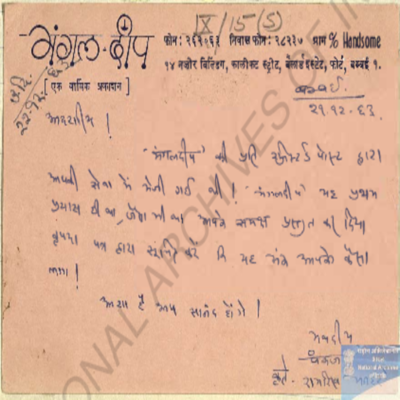 IX/15(S)
मंगल-दीप
फोन: २६२०६३ निवास फोन: २८२२० ग्राम % Handsome
१४ नजीर बिल्डिंग, कालीकट स्ट्रीट, बेलार्ड इस्टेट, फोर्ट, बम्बई १.
[एक वार्षिक प्रकाशन]
२२-१२-६३
बम्बई
२१-१२-६३.
आदरणीय!
'मंगलदीप' की प्रति रजिस्टर्ड पोस्ट द्वारा
आपकी सेवा में भेजी गई थी! 'मंगलदीप' यह प्रथम
प्रयास था, जैसा भी था आपके समक्ष प्रस्तुत कर दिया
कृपया पत्र द्वारा सूचित करें कि यह अंक आपको कैसा
लगा!
आशा है आप सानंद होंगे!
भवदीय
NATIONAL ARCHIVES OF